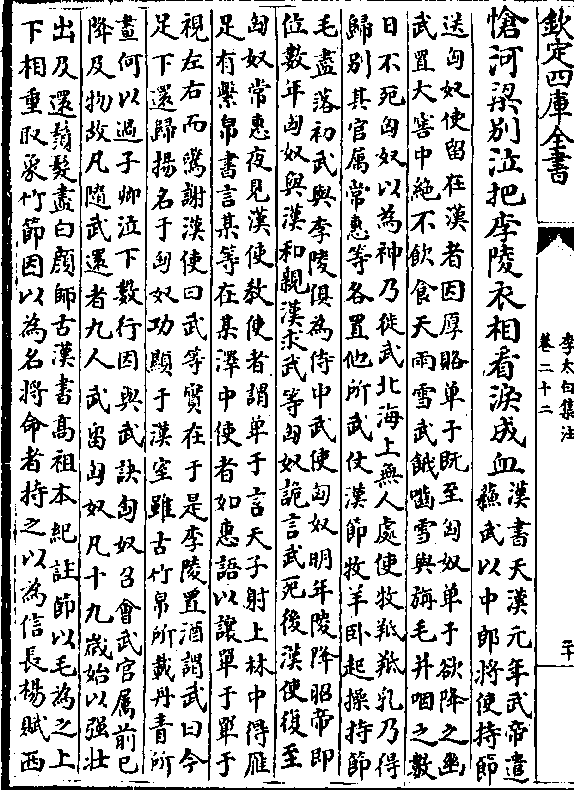 欽定四庫全書
李太白集注
卷二十二
愴河梁别泣把李陵衣相看淚成血
漢書天漢元年武帝遣
蘇武以中郎將使持節
送匈奴使留在漢者因厚賂单于既至匈奴单于欲降之幽
武置大窖中絶不飲食天雨雪武餓齧雪與旃毛并咽之數
日不死匈奴以為神乃徙武北海上無人處使牧羝羝乳乃得
歸别其官屬常惠等各置他所武仗漢節牧羊卧起操持節
毛盡落初武與李陵俱為侍中武使匈奴明年陵降昭帝即
位數年匈奴與漢和親漢求武等匈奴詭言武死後漢使復至
匈奴常惠夜見漢使教使者謂单于言天子射上林中得雁
足有繫帛書言某等在某澤中使者如惠語以讓單于單于
視左右而驚謝漢使曰武等實在于是李陵置酒謂武曰今
足下還歸揚名于匈奴功顯于漢室雖古竹帛所載丹青所
畫何以過子卿泣下數行因與武訣匈奴召會武官屬前已
降及物故凡隨武還者九人武留匈奴凡十九歲始以强壯
出及還鬚髮盡白顔師古漢書髙祖本紀註節以毛為之上
下相重取象竹節因以為名將命者持之以為信長楊賦西